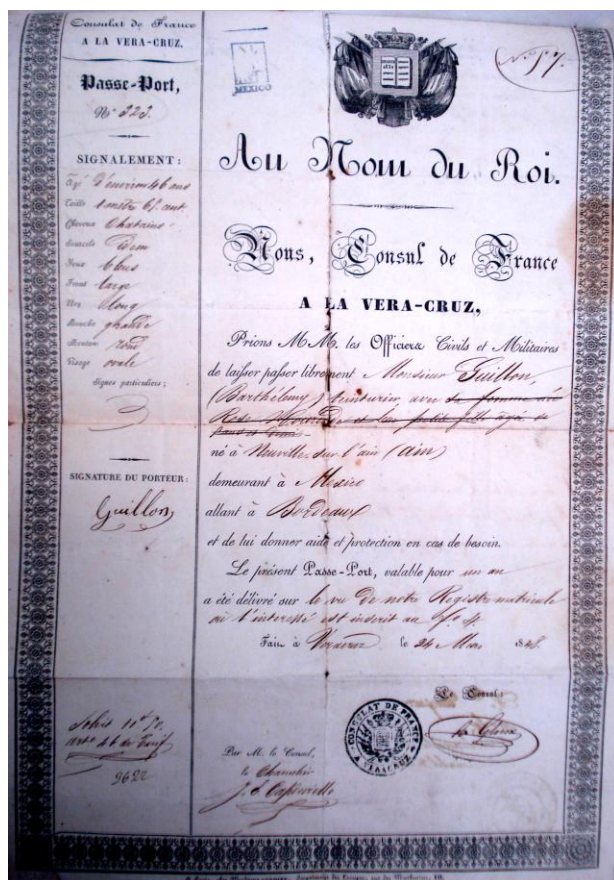 Consulat de France
A LA VERA-CRUZ.
Passe-Port,
No 323.
SIGNALEMENT:
Agé d'environ 46 ans
Taille 1 mètre 65 cent
Cheveux Chatains
Sourcils idem
Yeux bleus
Front large
Nez long
Bouche grande
Menton rond
Visage ovale
Signes particuliers;
SIGNATURE DU PORTEUR:
Guillon
art 46 du Tarif
2622
MEXICO
No 57.
Au Nom du Roi.
Nous, Consul de France
A LA VERA-CRUZ,
Prions M.M. les Officiers Civils et Militaires
de laisser passer librement Monsieur Guillon,
(Barthélemy) teinturier, avec sa femme née
et leur petite fille agée de
né à Neuville sur l'ain (ain)
demeurant à Mexico
allant à Bordeaux
et de lui donner aide et protection en cas de besoin.
Le présent Passe-Port, valable pour un an
a été délivré sur le vu de notre Registre matricule
où l'interessé est inscrit au fo 4.
Fait à Veracruz le 24 Mars
Le Consul:
CONSULAT DE FRANCE A LA VERA CRUZ
Par M. le Consul,
le Chancelier